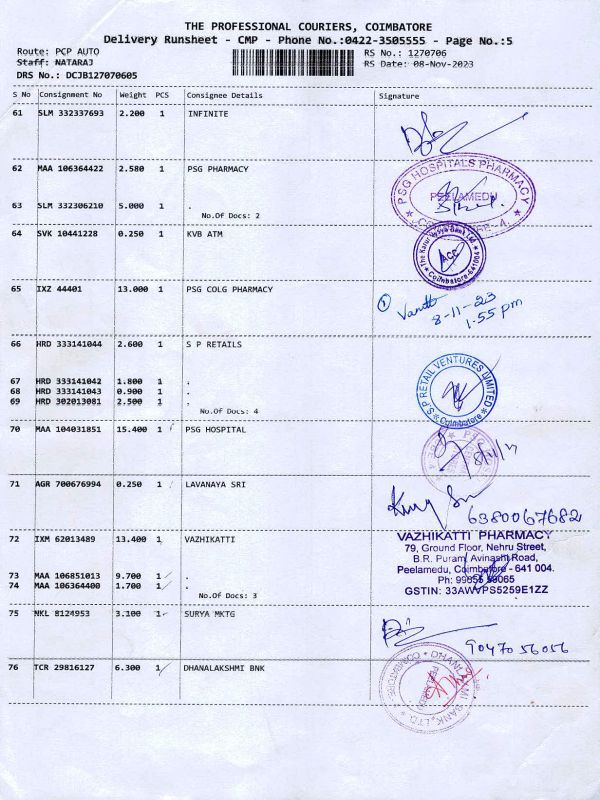 THE PROFESSIONAL COURIERS, COIMBATORE
Delivery Runsheet - CMP - Phone No.:0422-3505555 - Page No.:5
Route: PCP AUTO RS No.: 1270706
Staff: NATARAJ RS Date: 08-Nov-2023
DRS No.: DCJB127070605
S No Consignment No Weight PCS Consignee Details Signature
61 SLM 332337693 2.200 1 INFINITE
62 MAA 106364422 2.580 1 PSG PHARMACY
PSG HOSPITALS PHARMACY
PEELAMEDU
63 SLM 332306210 5.000 1 .
No.Of Docs: 2
64 SVK 10441228 0.250 1 KVB ATM
The Karur Vysya Bank Ltd
ACC
Coimbatore-641004
65 IXZ 44401 13.000 1 PSG COLG PHARMACY
8-11-23
1.55 pm
66 HRD 333141044 2.600 1 S P RETAILS
S.P RETAIL VENTURES LIMITED
Coimbatore
67 HRD 333141042 1.800 1 .
68 HRD 333141043 0.900 1 .
69 HRD 302013081 2.500 1 .
No.Of Docs: 4
70 MAA 104031851 15.400 1 PSG HOSPITAL
71 AGR 700676994 0.250 1 LAVANAYA SRI
6380067682
72 IXM 62013489 13.400 1 VAZHIKATTI
VAZHIKATTI PHARMACY
79, Ground Floor, Nehru Street,
B.R. Puram, Avinashi Road,
Peelamedu, Coimbatore - 641 004.
GSTIN: 33AWVPS5259E1ZZ
73 MAA 106851013 9.700 1 .
74 MAA 106364400 1.700 1 .
No.Of Docs: 3
75 NKL 8124953 3.100 1 SURYA MKTG
90470 56056
76 TCR 29816127 6.300 1 DHANALAKSHMI BNK